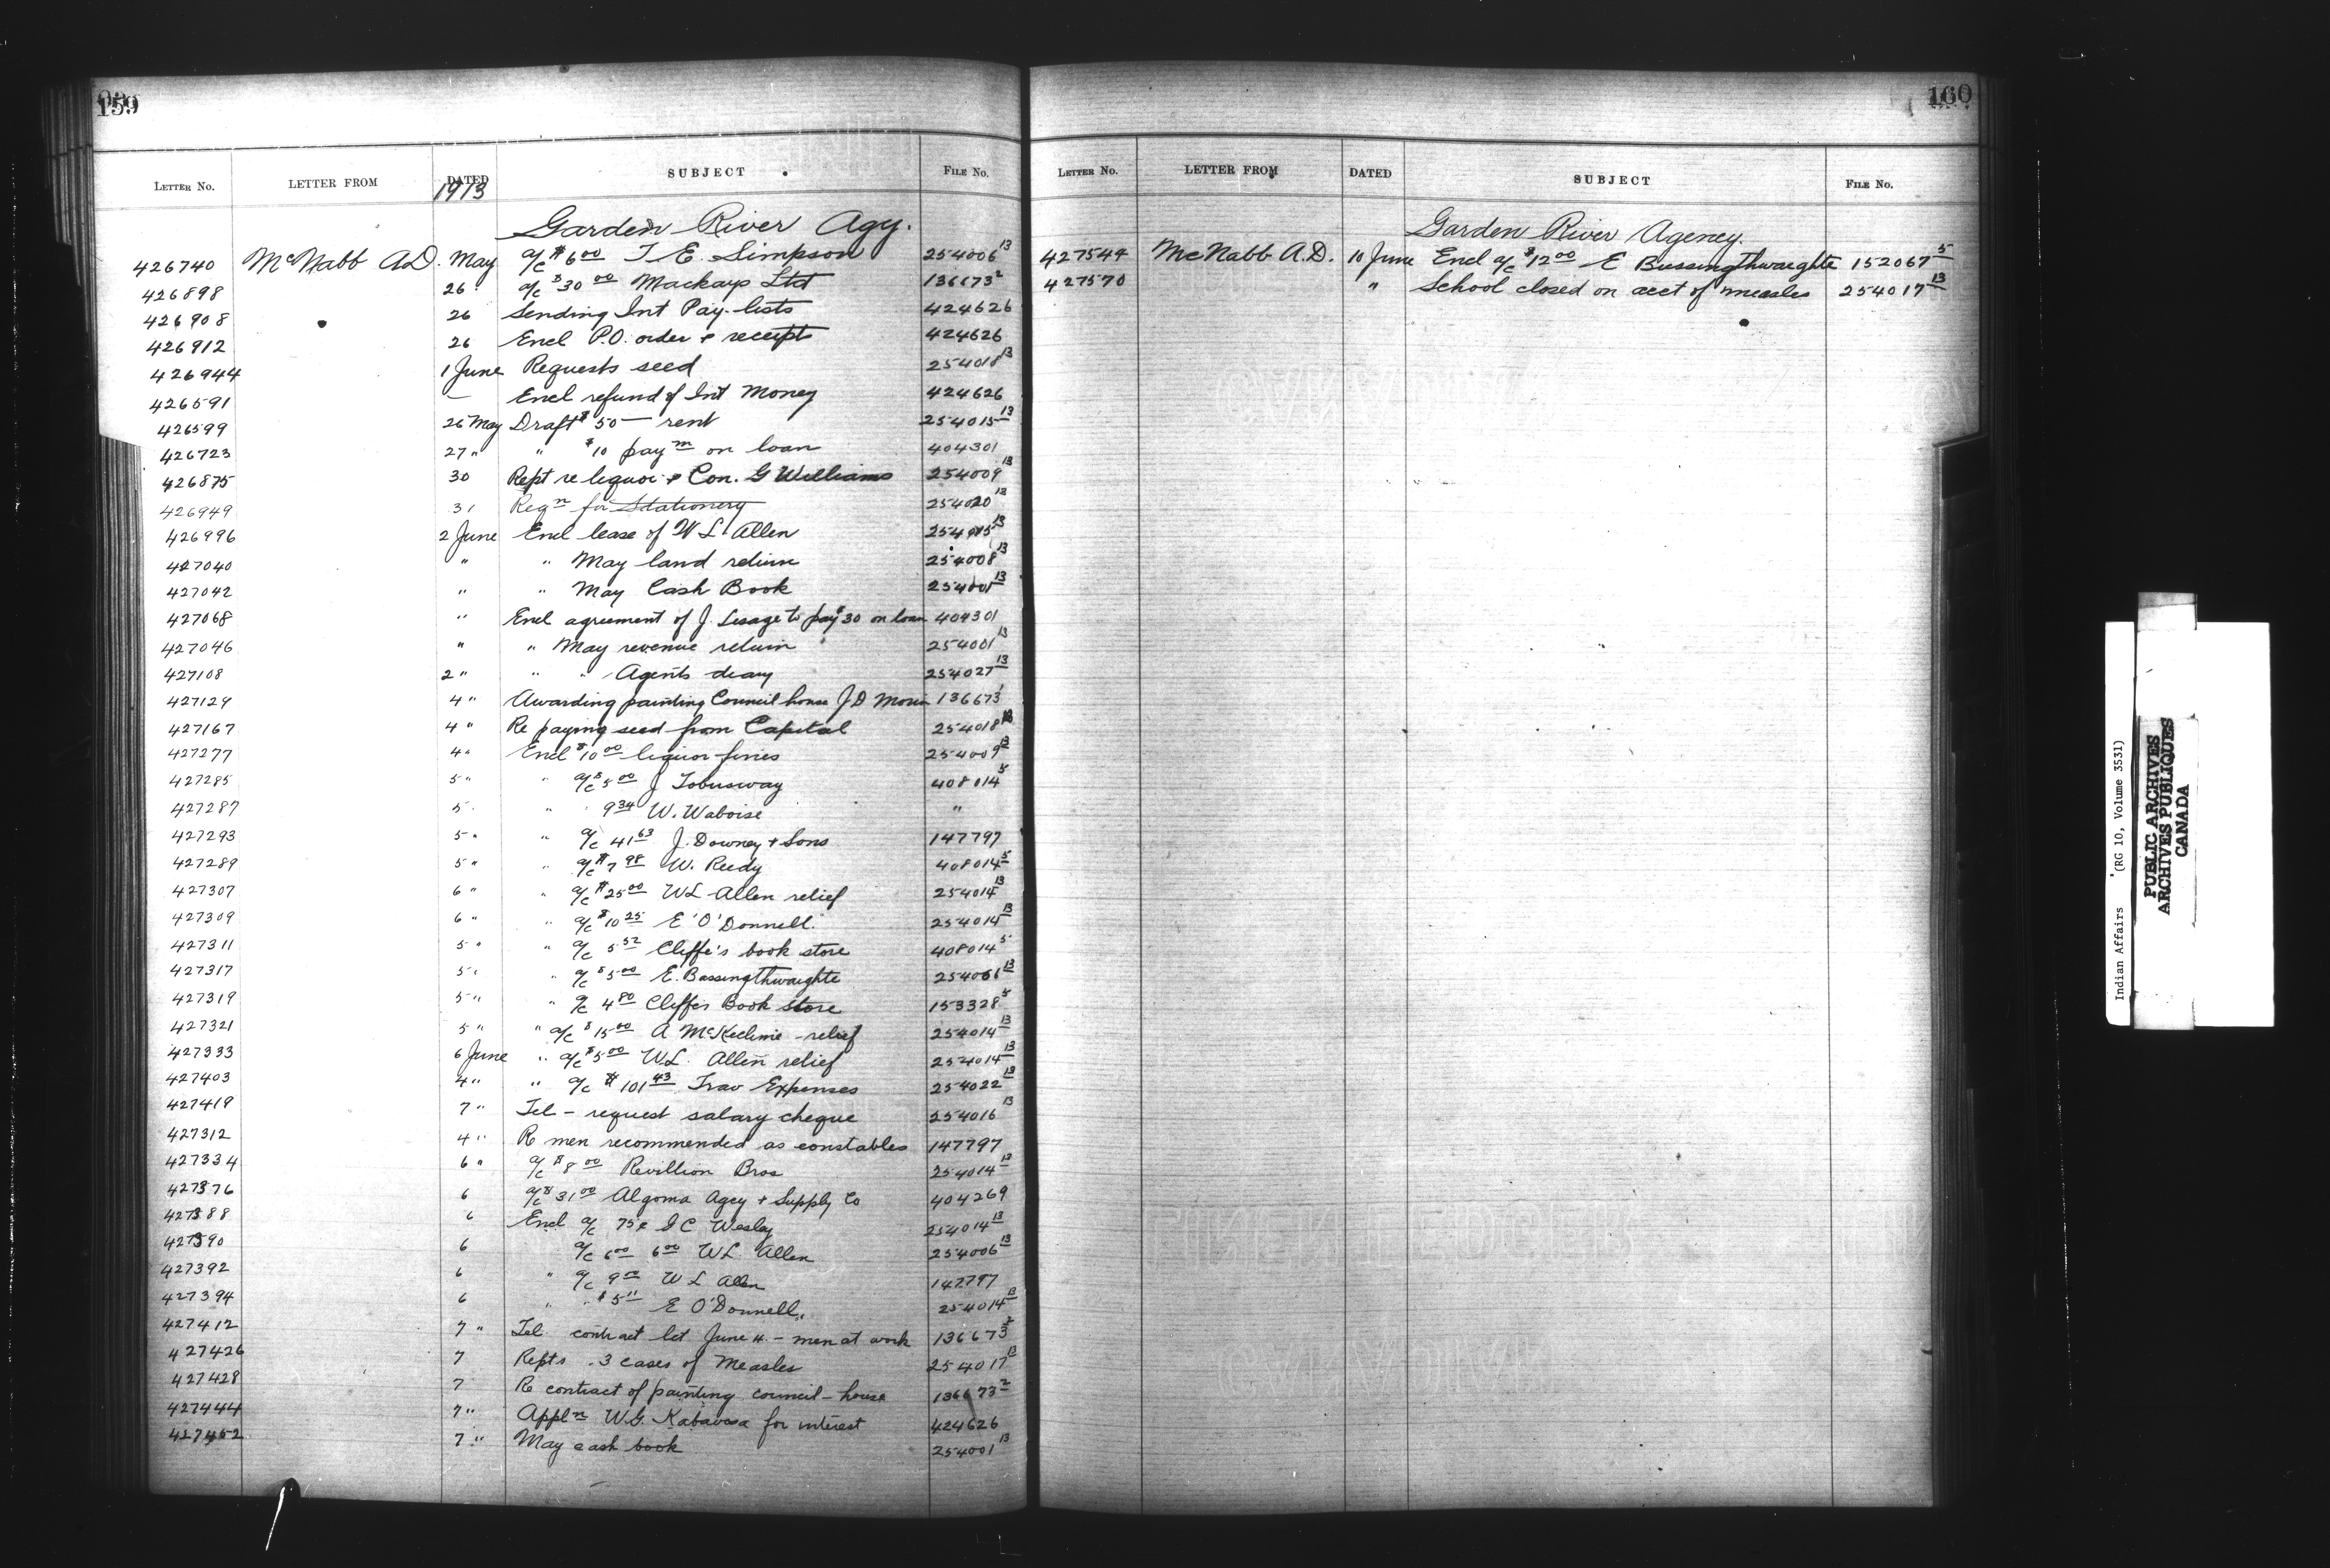 159
LETTER No. LETTER FROM DATED SUBJECT FILE No.
1913
Garden River Agy.
426740 McNabb A.D. May a/c $6.00 T. E. Simpson 254006 13
426898 26 a/c $30.00 Mackays Ltd 136673 2
426908 26 Sending Int Pay-lists 424626
426912 26 Encl P.O. order + receipts 424626
426944 1 June Requests seed 254018 13
426591 — Encl refund of Int Money 424626
426599 26 May Draft $50— rent 254015 13
426723 27 " " $10 paym on loan 404301
426875 30 Rept re liquor + Con. G Williams 254009 13
426949 31 Reqn for Stationery 254020 13
426996 2 June Encl lease of W L Allen 254015 13
427040 " " May land return 254008 13
427042 " " May Cash Book 254001 13
427068 " Encl agreement of J. Lesage to pay $30 on loan 404301
427046 " " May revenue return 254001 13
427108 2 " " " Agents diary 254027 13
427129 4 " Awarding painting Council house J D 136673
427167 4 " Re paying seed from Capital 254018 13
427277 4 " Encl $10.00 liquor fines 254009 13
427285 5 " " a/c $5.00 J Tobusway 408014 5
427287 5 " " 9.34 W. Waboise "
427293 5 " " a/c 41.63 J. Downey + Sons 147797
427289 5 " " a/c $7.98 W. Reedy 408014 5
427307 6 " " a/c $25.00 WL Allen relief 254014 13
427309 6 " " a/c $10.25 E O'Donnell 254014 13
427311 5 " " a/c 5.52 Cliffe's book store 408014 5
427317 5 " " a/c $5.00 E. Bassingthwaighte 254061 13
427319 5 " " a/c 4.80 Cliffes Book Store 153328 5
427321 5 " " a/c $15.00 A McKechnie - relief 254014 13
427333 6 June " a/c $5.00 W.L. Allen relief 254014 13
427403 4 " " a/c $101.43 Trav Expenses 254022 13
427419 7 " Tel - request salary cheque 254016 13
427312 4 " Re men recommended as constables 147797
427334 6 " a/c $8.00 Revillion Bros 254014 13
427376 6 a/c $31.00 Algoma Agcy + Supply Co 404269
427388 6 Encl a/c 75¢ J C Wesley 254014 13
427390 6 a/c 6.00 6.00 W L. Allen 254006 13
427392 6 " a/c 9.00 W L Allen 147797
427394 6 " " $5.11 E O'Donnell 254014 13
427412 7 " Tel. contract let June 4. - men at work 136673 2
427426 7 Repts. 3 cases of Measles 254017 13
427428 7 Re contract of painting council-house 136673 2
427444 7 " Appln W.G. Kabaosa for interest 424626
427452 7 " May cash book 254001 13
160
LETTER No. LETTER FROM DATED SUBJECT FILE No.
Garden River Agency.
427544 McNabb A.D. 10 June Encl a/c $12.00 E Bassingthwaighte 152067 5
427570 " School closed on acct of measles 254017 13
Indian Affairs (RG 10, Volume 3531)
PUBLIC ARCHIVES
ARCHIVES PUBLIQUES
CANADA